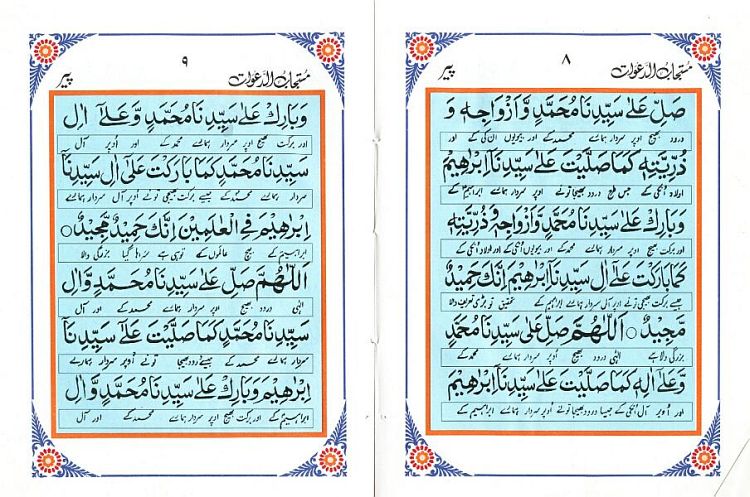 پیر ۸ مستجاب الدعوات
صَلِّ عَلٰى سَيِّدِنَا مُحَمَّدٍ وَّاَزْوَاجِهٖ وَ
درود بھیج اوپر سردار ہمارے محمدؐ کے اور بیویوں ان کی کے اور
ذُرِّيَّتِهٖ كَمَا صَلَّيْتَ عَلٰى سَيِّدِنَآ اِبْرٰهِيْمَ
اولاد انکی کے جس طرح درود بھیجا تونے اوپر سردار ہمارے ابراہیمؑ کے
وَبَارِكْ عَلٰى سَيِّدِنَا مُحَمَّدٍ وَّاَزْوَاجِهٖ وَذُرِّيَّتِهٖ
اور برکت بھیج اوپر سردار ہمارے محمدؐ کے اور بیویوں انکی کے اور اولاد انکی کے
كَمَا بَارَكْتَ عَلٰٓى اٰلِ سَيِّدِنَآ اِبْرٰهِيْمَ اِنَّكَ حَمِيْدٌ
جیسے برکت بھیجی تونے اوپر آل سردار ہمارے ابراہیم کے تحقیق تو بڑی تعریف والا
مَّجِيْدٌ ○ اَللّٰهُمَّ صَلِّ عَلٰى سَيِّدِنَا مُحَمَّدٍ
بزرگی والا ہے الٰہی درود بھیج اوپر سردار ہمارے محمدؐ کے
وَّعَلٰٓى اٰلِهٖ كَمَا صَلَّيْتَ عَلٰى سَيِّدِنَآ اِبْرٰهِيْمَ
اور اوپر آل انکی کے جیسا درود بھیجا تونے اوپر سردار ہمارے ابراہیم کے
پیر ۹ مستجاب الدعوات
وَبَارِكْ عَلٰى سَيِّدِنَا مُحَمَّدٍ وَّعَلٰٓى اٰلِ
اور برکت بھیج اوپر سردار ہمارے محمدؐ کے اور اوپر آل
سَيِّدِنَا مُحَمَّدٍ كَمَا بَارَكْتَ عَلٰٓى اٰلِ سَيِّدِنَآ
سردار ہمارے محمدؐ کے جیسے برکت بھیجی تونے اوپر آل سردار ہمارے
اِبْرٰهِيْمَ فِى الْعٰلَمِيْنَ اِنَّكَ حَمِيْدٌ مَّجِيْدٌ ○
ابراہیم کے بیچ عالموں کے توہی ہے سراہا گیا بزرگی والا
اَللّٰهُمَّ صَلِّ عَلٰى سَيِّدِنَا مُحَمَّدٍ وَّاٰلِ
الٰہی درود بھیج اوپر سردار ہمارے محمدؐ کے اور آل
سَيِّدِنَا مُحَمَّدٍ كَمَا صَلَّيْتَ عَلٰى سَيِّدِنَآ
سردار ہمارے محمدؐ کے جیسے درود بھیجا تونے اوپر سردار ہمارے
اِبْرٰهِيْمَ وَبَارِكْ عَلٰى سَيِّدِنَا مُحَمَّدٍ وَّاٰلِ
ابراہیمؑ کے اور برکت بھیج اوپر سردار ہمارے محمدؐ کے اور آل